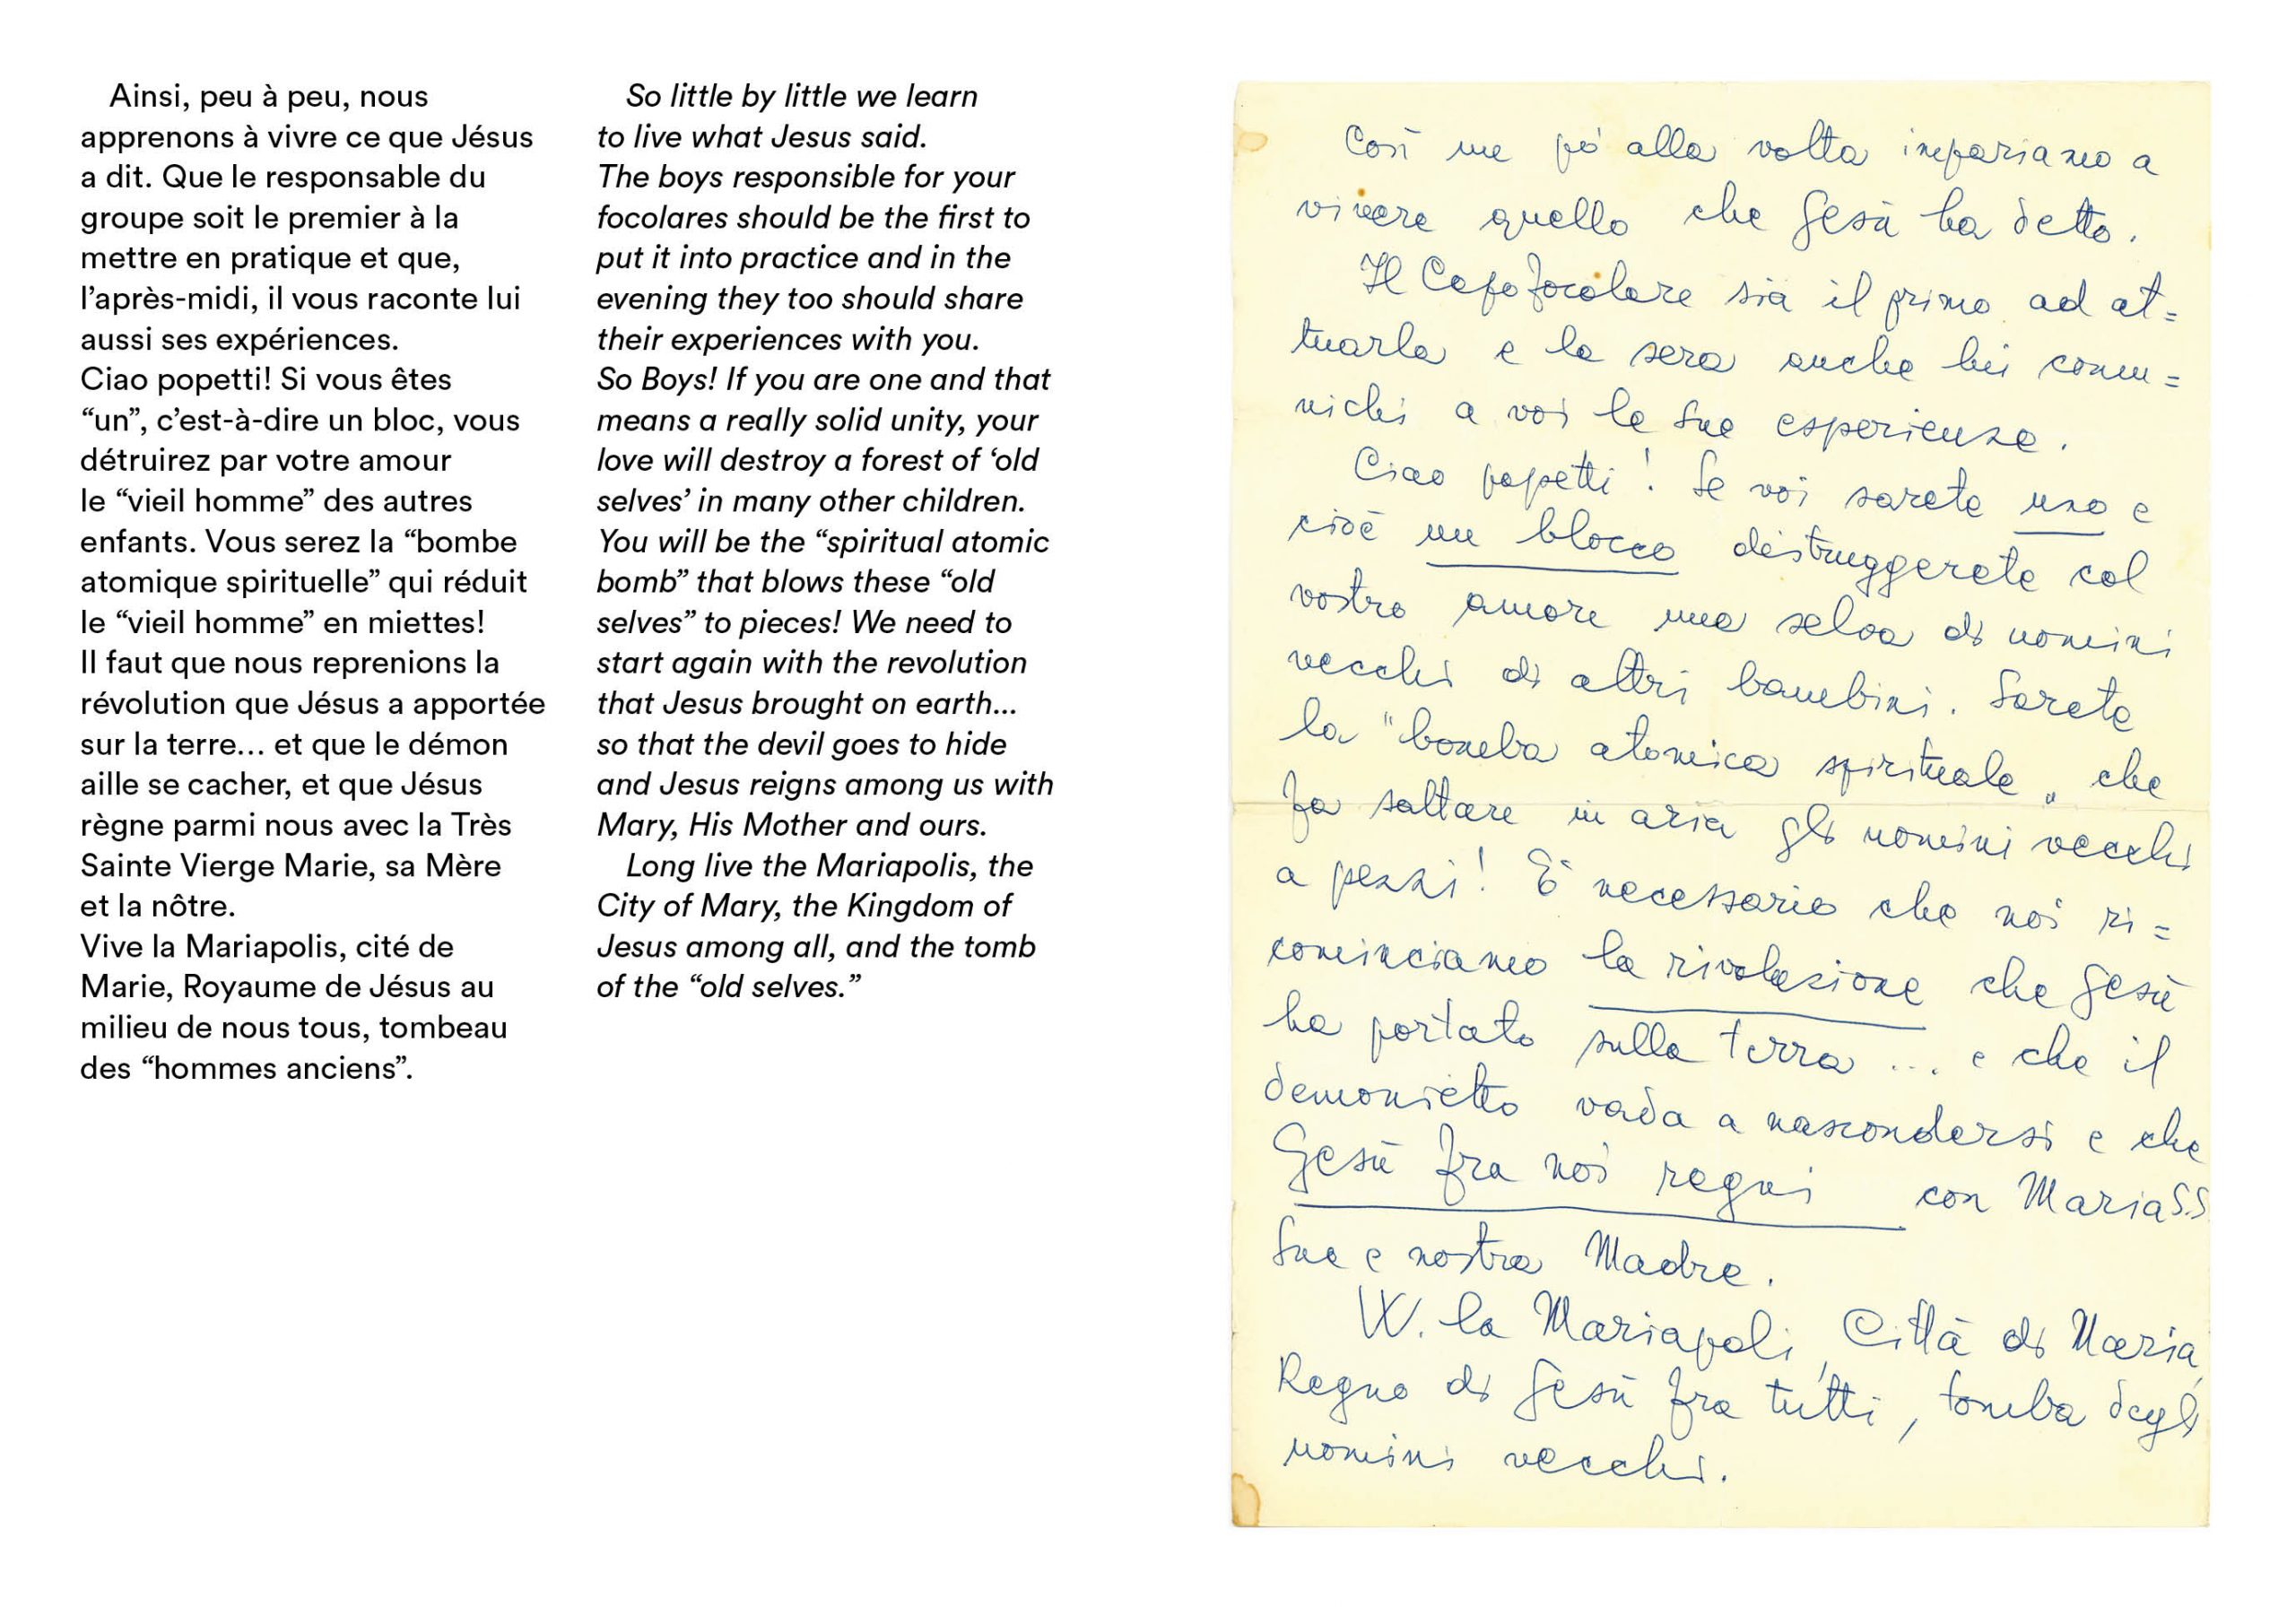 Ainsi, peu à peu, nous
apprenons à vivre ce que Jésus
a dit. Que le responsable du
groupe soit le premier à la
mettre en pratique et que,
l’après-midi, il vous raconte lui
aussi ses expériences.
Ciao popetti! Si vous êtes
“un”, c’est-à-dire un bloc, vous
détruirez par votre amour
le “vieil homme” des autres
enfants. Vous serez la “bombe
atomique spirituelle” qui réduit
le “vieil homme” en miettes!
Il faut que nous reprenions la
révolution que Jésus a apportée
sur la terre... et que le démon
aille se cacher, et que Jésus
règne parmi nous avec la Très
Sainte Vierge Marie, sa Mère
et la nôtre.
Vive la Mariapolis, cité de
Marie, Royaume de Jésus au
milieu de nous tous, tombeau
des “hommes anciens”.
So little by little we learn
to live what Jesus said.
The boys responsible for your
focolares should be the first to
put it into practice and in the
evening they too should share
their experiences with you.
So Boys! If you are one and that
means a really solid unity, your
love will destroy a forest of ‘old
selves’ in many other children.
You will be the “spiritual atomic
bomb” that blows these “old
selves” to pieces! We need to
start again with the revolution
that Jesus brought on earth...
so that the devil goes to hide
and Jesus reigns among us with
Mary, His Mother and ours.
Long live the Mariapolis, the
City of Mary, the Kingdom of
Jesus among all, and the tomb
of the “old selves.”
Così un pò alla volta impariamo a
vivere quello che Gesù ha detto.
Il Capofocolare sia il primo ad at=
tuarla e la sera anche lui comu=
nichi a voi le sue esperienze.
Ciao popetti! Se voi sarete uno e
cioè un blocco distruggerete col
vostro amore una selva di uomini
vecchi di altri bambini. Sarete
la "bomba atomica spirituale„ che
fa saltare in aria gli uomini vecchi
a pezzi! È necessario che noi ri=
cominciamo la rivoluzione che Gesù
ha portato sulla terra ... e che il
demonietto vada a nascondersi e che
Gesù fra noi regni con Maria S.S
Sua e nostra Madre.
W. la Mariapoli, Città di Maria,
Regno di Gesù fra tutti, tomba degli
uomini vecchi.